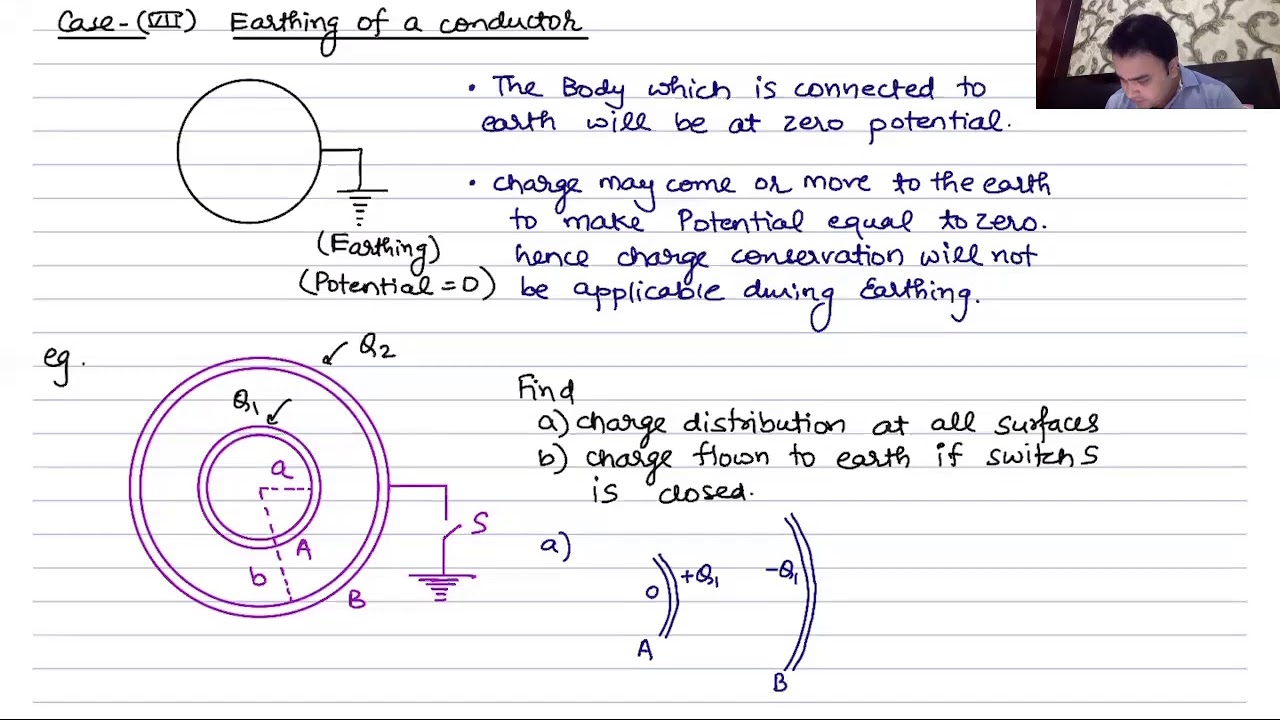 Case-(VII) Earthing of a conductor
• The Body which is connected to
earth will be at zero potential.
• charge may come or move to the earth
to make Potential equal to zero.
hence charge conservation will not
be applicable during Earthing.
(Earthing)
(Potential = 0)
eg.
Q2
Q1
a
A
b
B
S
Find
a) charge distribution at all surfaces
b) charge flown to earth if switch S
is closed.
a)
0
+Q1
-Q1
A
B